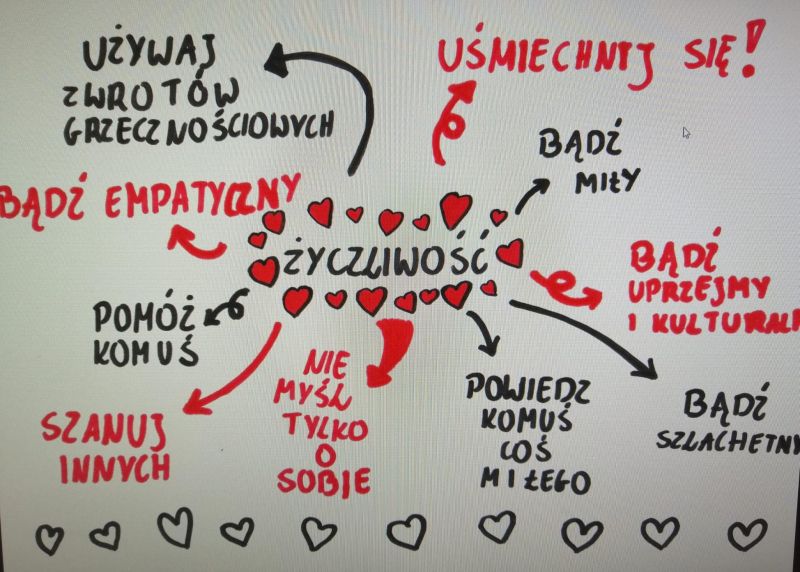 UŻYWAJ
ZWROTÓW
GRZECZNOŚCIOWYCH
UŚMIECHNIJ SIĘ!
BĄDŹ
MIŁY
BĄDŹ EMPATYCZNY
ŻYCZLIWOŚĆ
BĄDŹ
UPRZEJMY
I KULTURALN
POMÓŻ
KOMUŚ
NIE
MYŚL
TYLKO
O
SOBIE
POWIEDZ
KOMUŚ
COŚ
MIŁEGO
BĄDŹ
SZLACHETNY
SZANUJ
INNYCH